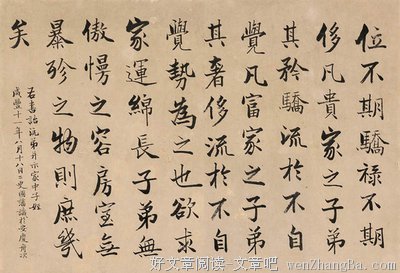 位不期驕祿不期
侈凡貴家之子弟
其矜驕流於不自
覺凡富家之子弟
其奢侈流於不自
覺勢為之也欲求
家運綿長子弟無
傲慢之容房室無
暴殄之物則庶幾
矣
右書詒沅弟并示家中子姪
咸豐十一年八月十八日二更國藩識於安慶舟次
好文章阅读-文章吧
wenZhangBa.com